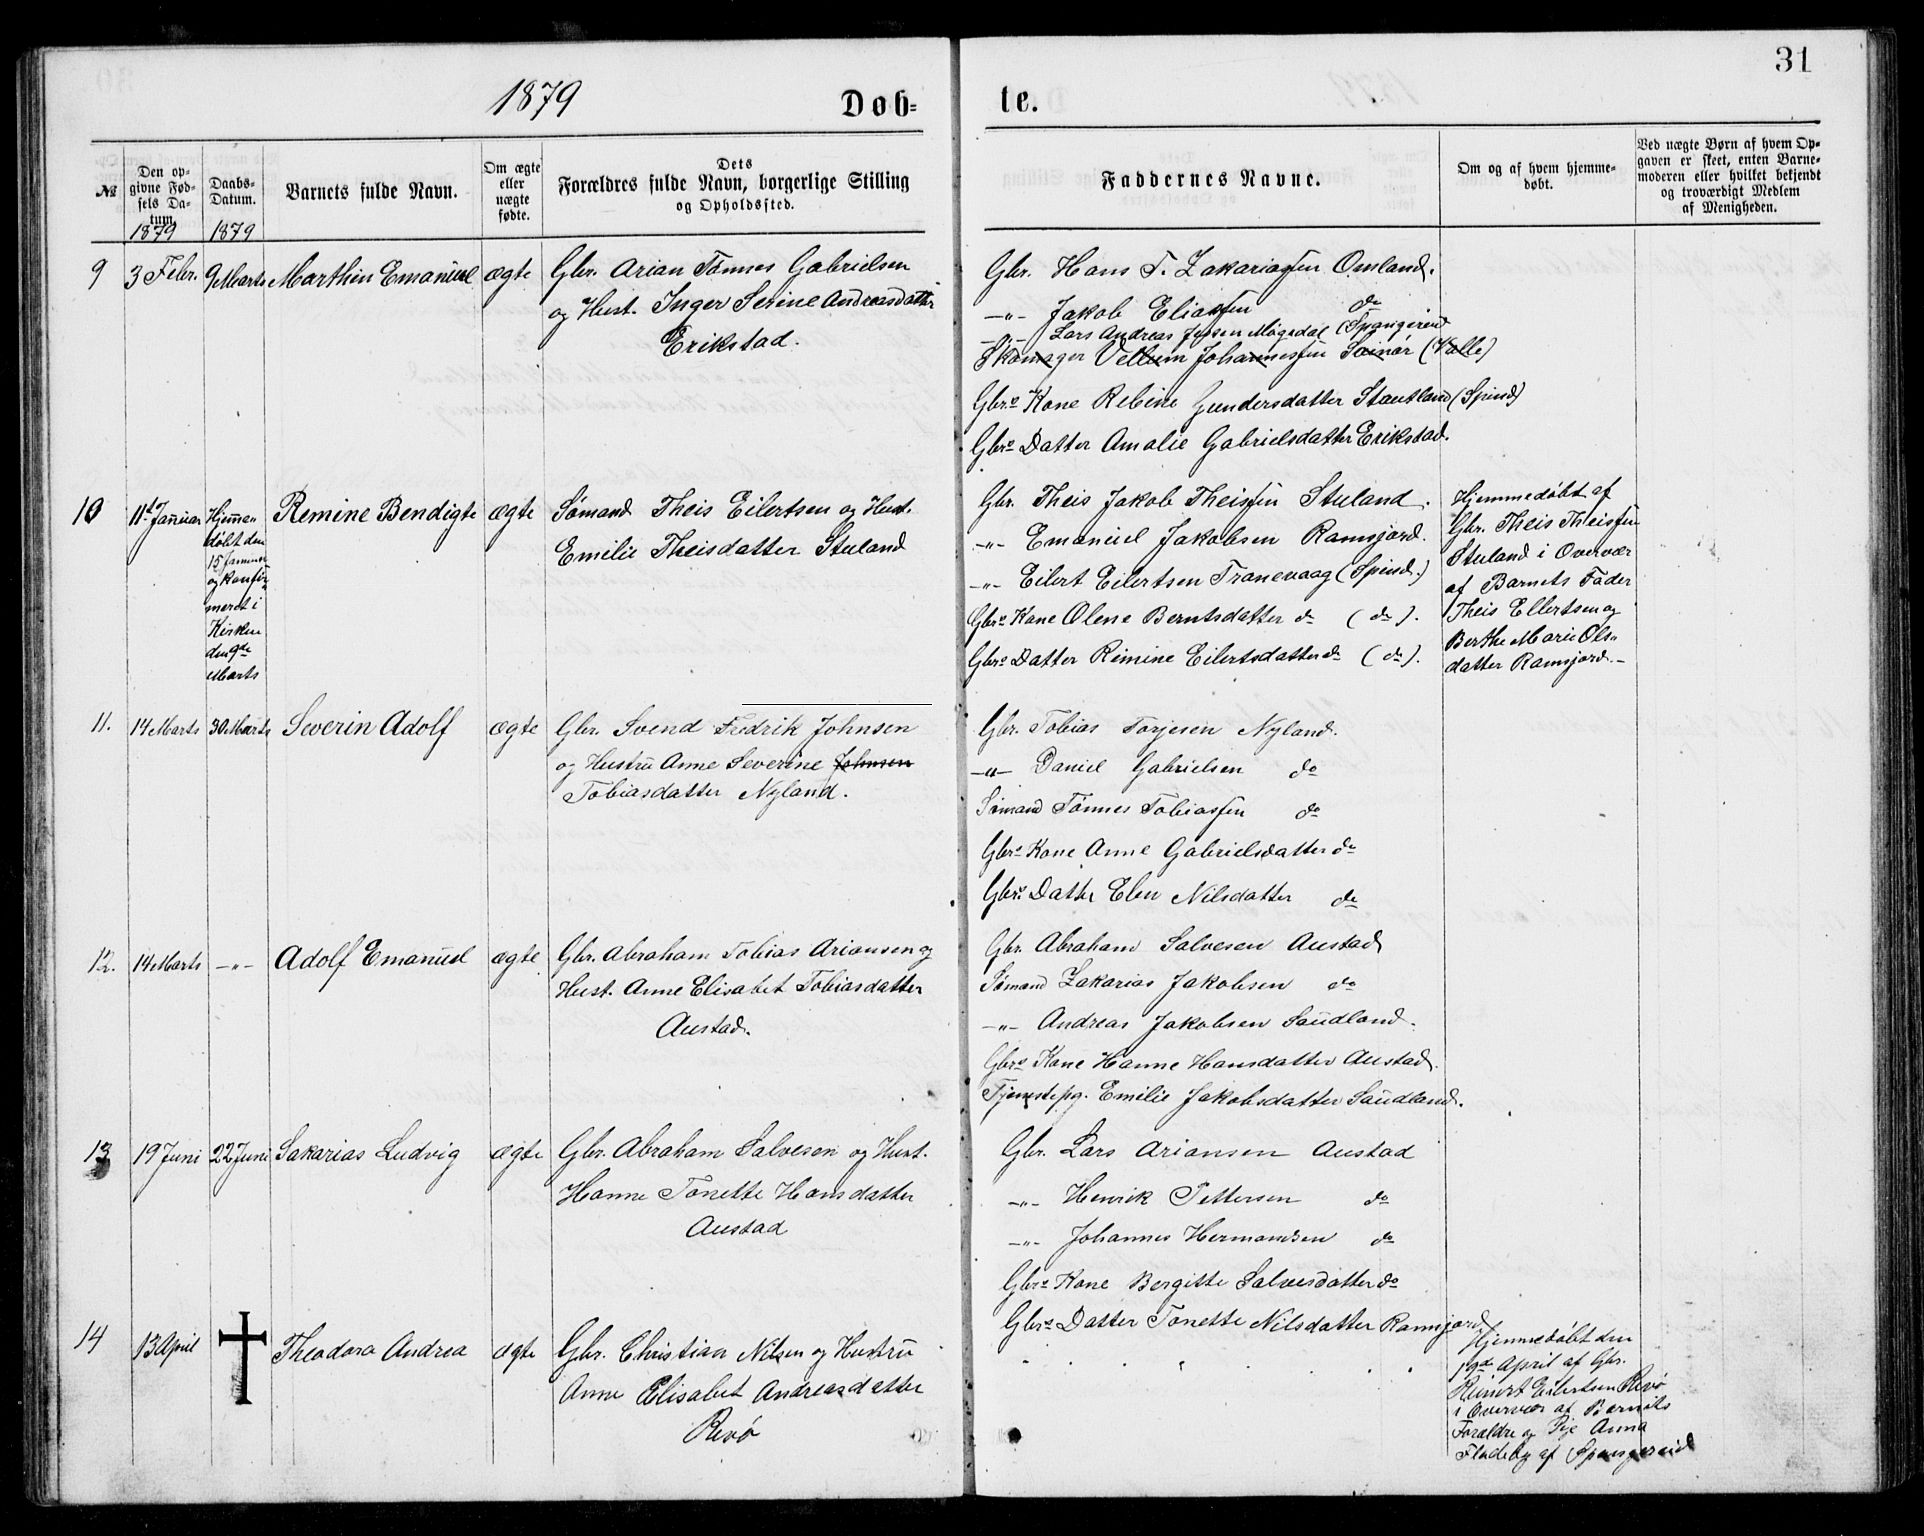 31
1879
Døb-
te.
№
Den op-
givne Fød-
sels Da-
tum.
1879
Daabs-
Datum.
1879
Barnets fulde Navn.
Om ægte
eller
uægte
fødte.
Dets
Forældres fulde Navn, borgerlige Stilling
og Opholdssted.
Faddernes Navne.
Om og af hvem hjemme-
døbt.
Ved uægte Børn af hvem Op-
gaven er skeet, enten Barne-
moderen eller hvilket bekjendt
og troværdigt Medlem
af Menigheden.
9
3 Febr.
9 Marts
Marthin Emanuel
ægte
Gbr. Arian Tønnes Gabrielsen
og Hust. Inger Serine Andreasdatter
Erikstad.
Gbr. Hans T. Zakariassen Omland.
-"- Jakob Eliassen do
-"- Lars Andreas Jensen Møgedal (Spangereid
Skomager Vellum Johannessen Soinør (Valle)
Gbrs Kone Rebine Gundersdatter Stautland (Spind)
Gbrs Datter Amalie Gabrielsdatter Erikstad.
10
11te Januar
Hjemme-
døbt den
15 Januar
og konfir-
meret i
Kirken
den 9de
Marts
Remine Bendigte
ægte
Sømand Theis Eilertsen og Hust.
Emilie Theisdatter Stuland
Gbr. Theis Jakob Theissen Stuland.
-"- Emanuel Jakobsen Ramsjord.
-"- Eilert Eilertsen Tranevaag (Spind.)
Gbrs Kone Olene Berntsdatter do (do).
Gbrs Datter Remine Eilertsdatter do (do).
Hjemmedøbt af
Gbr. Theis Theissen
Stuland i Overvær
af Barnets Fader
Theis Ellertsen og
Berthe Marie Ols-
datter Ramsjord.-
11.
14 Marts
30 Marts
Severin Adolf
ægte
Gbr. Svend Fredrik Johnsen
og Hustru Anne Severine Johnsen
Tobiasdatter Nyland.
Gbr. Tobias Torjesen Nyland.
-"- Daniel Gabrielsen do
Sømand Tønnes Tobiassen do
Gbrs Kone Anne Gabrielsdatter do
Gbrs Datter Elen Nilsdatter do
12.
14 Marts
-"-
Adolf Emanuel
ægte
Gbr. Abraham Tobias Ariansen og
Hust. Anne Elisabet Tobiasdatter
Austad.
Gbr. Abraham Salvesen Austad
Sømand Zakarias Jakobsen do
-"- Andreas Jakobsen Saudland.
Gbrs Kone Hanne Hansdatter Austad.
Tjenestepg. Emilie Jakobsdatter Saudland.
13
19 Juni
22 Juni
Sakarias Ludvig
ægte
Gbr. Abraham Salvesen og Hust.
Hanne Tonette Hansdatter
Austad
Gbr. Lars Ariansen Austad
-"- Henrik Pettersen do
-"- Johannes Hermansen do
Gbrs Kone Bergitte Salvesdatter do
Gbrs Datter Tonette Nilsdatter Ramsjord
14
13 April
Theodora Andrea
ægte
Gbr. Christian Nilsen og Hustru
Anne Elisabet Andreasdatter
Revø
Hjemmedøbt den
19de April af Gbr.
Reinert Eilertsen Revø
i Overvær af Barnets
Forældre og Pige Anna
Fladeby af Spangereid